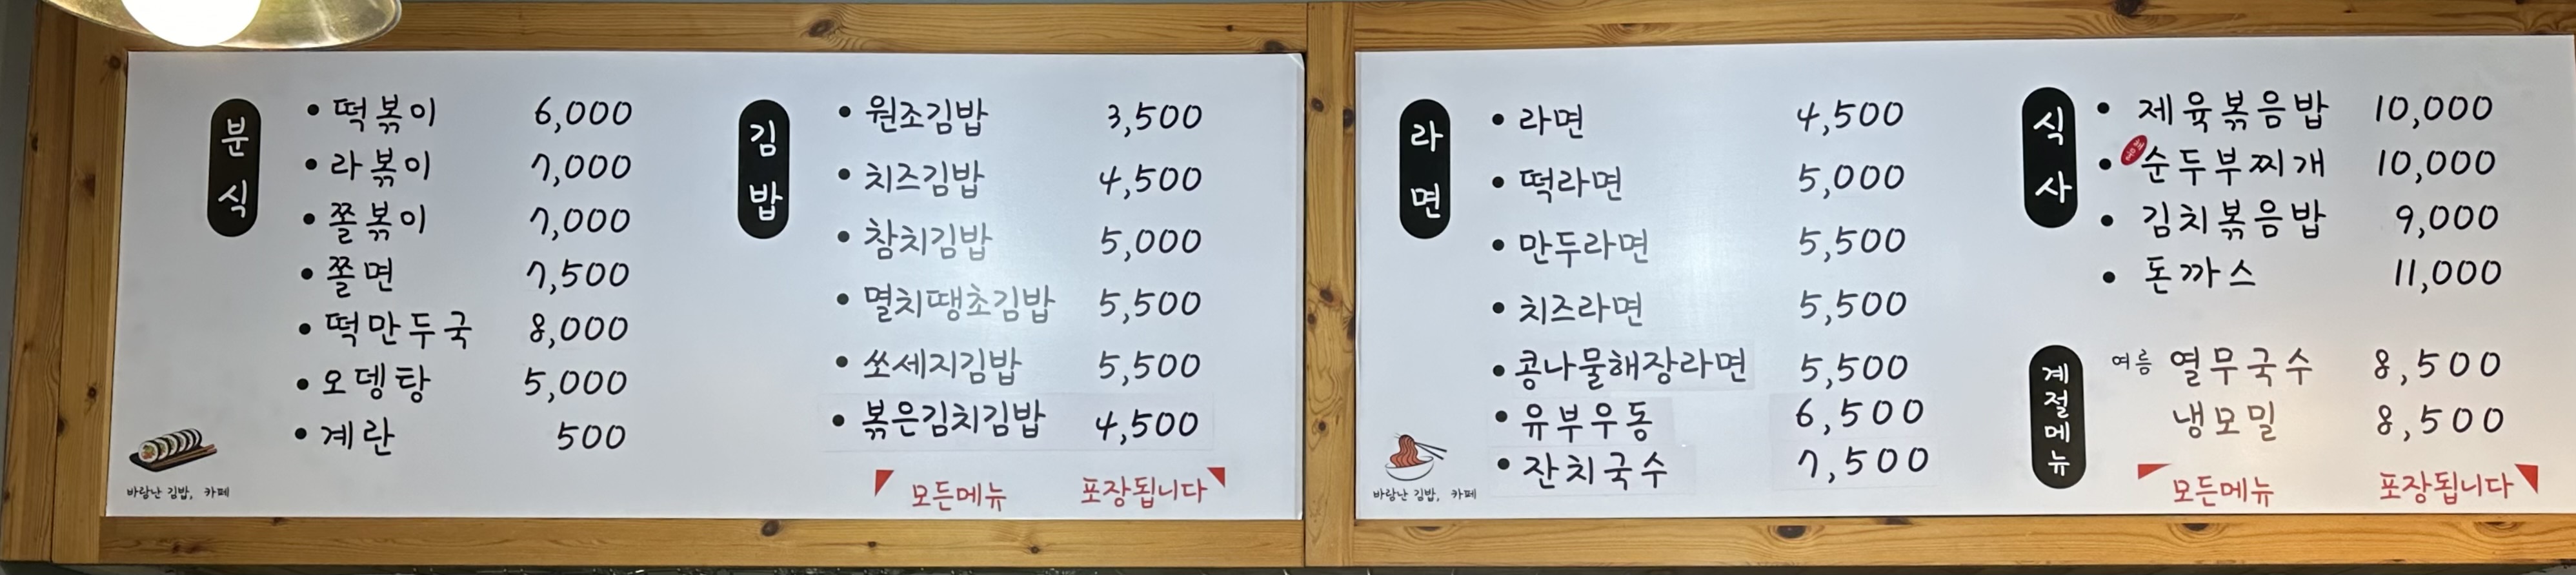 분식
• 떡볶이 6,000
• 라볶이 7,000
• 쫄볶이 7,000
• 쫄면 7,500
• 떡만두국 8,000
• 오뎅탕 5,000
• 계란 500
바람난 김밥, 카페
김밥
• 원조김밥 3,500
• 치즈김밥 4,500
• 참치김밥 5,000
• 멸치땡초김밥 5,500
• 쏘세지김밥 5,500
• 볶은김치김밥 4,500
모든메뉴 포장됩니다
라면
• 라면 4,500
• 떡라면 5,000
• 만두라면 5,500
• 치즈라면 5,500
• 콩나물해장라면 5,500
• 유부우동 6,500
• 잔치국수 7,500
바람난 김밥, 카페
식사
• 제육볶음밥 10,000
• 순두부찌개 10,000
• 김치볶음밥 9,000
• 돈까스 11,000
계절메뉴
여름 열무국수 8,500
냉모밀 8,500
모든메뉴 포장됩니다